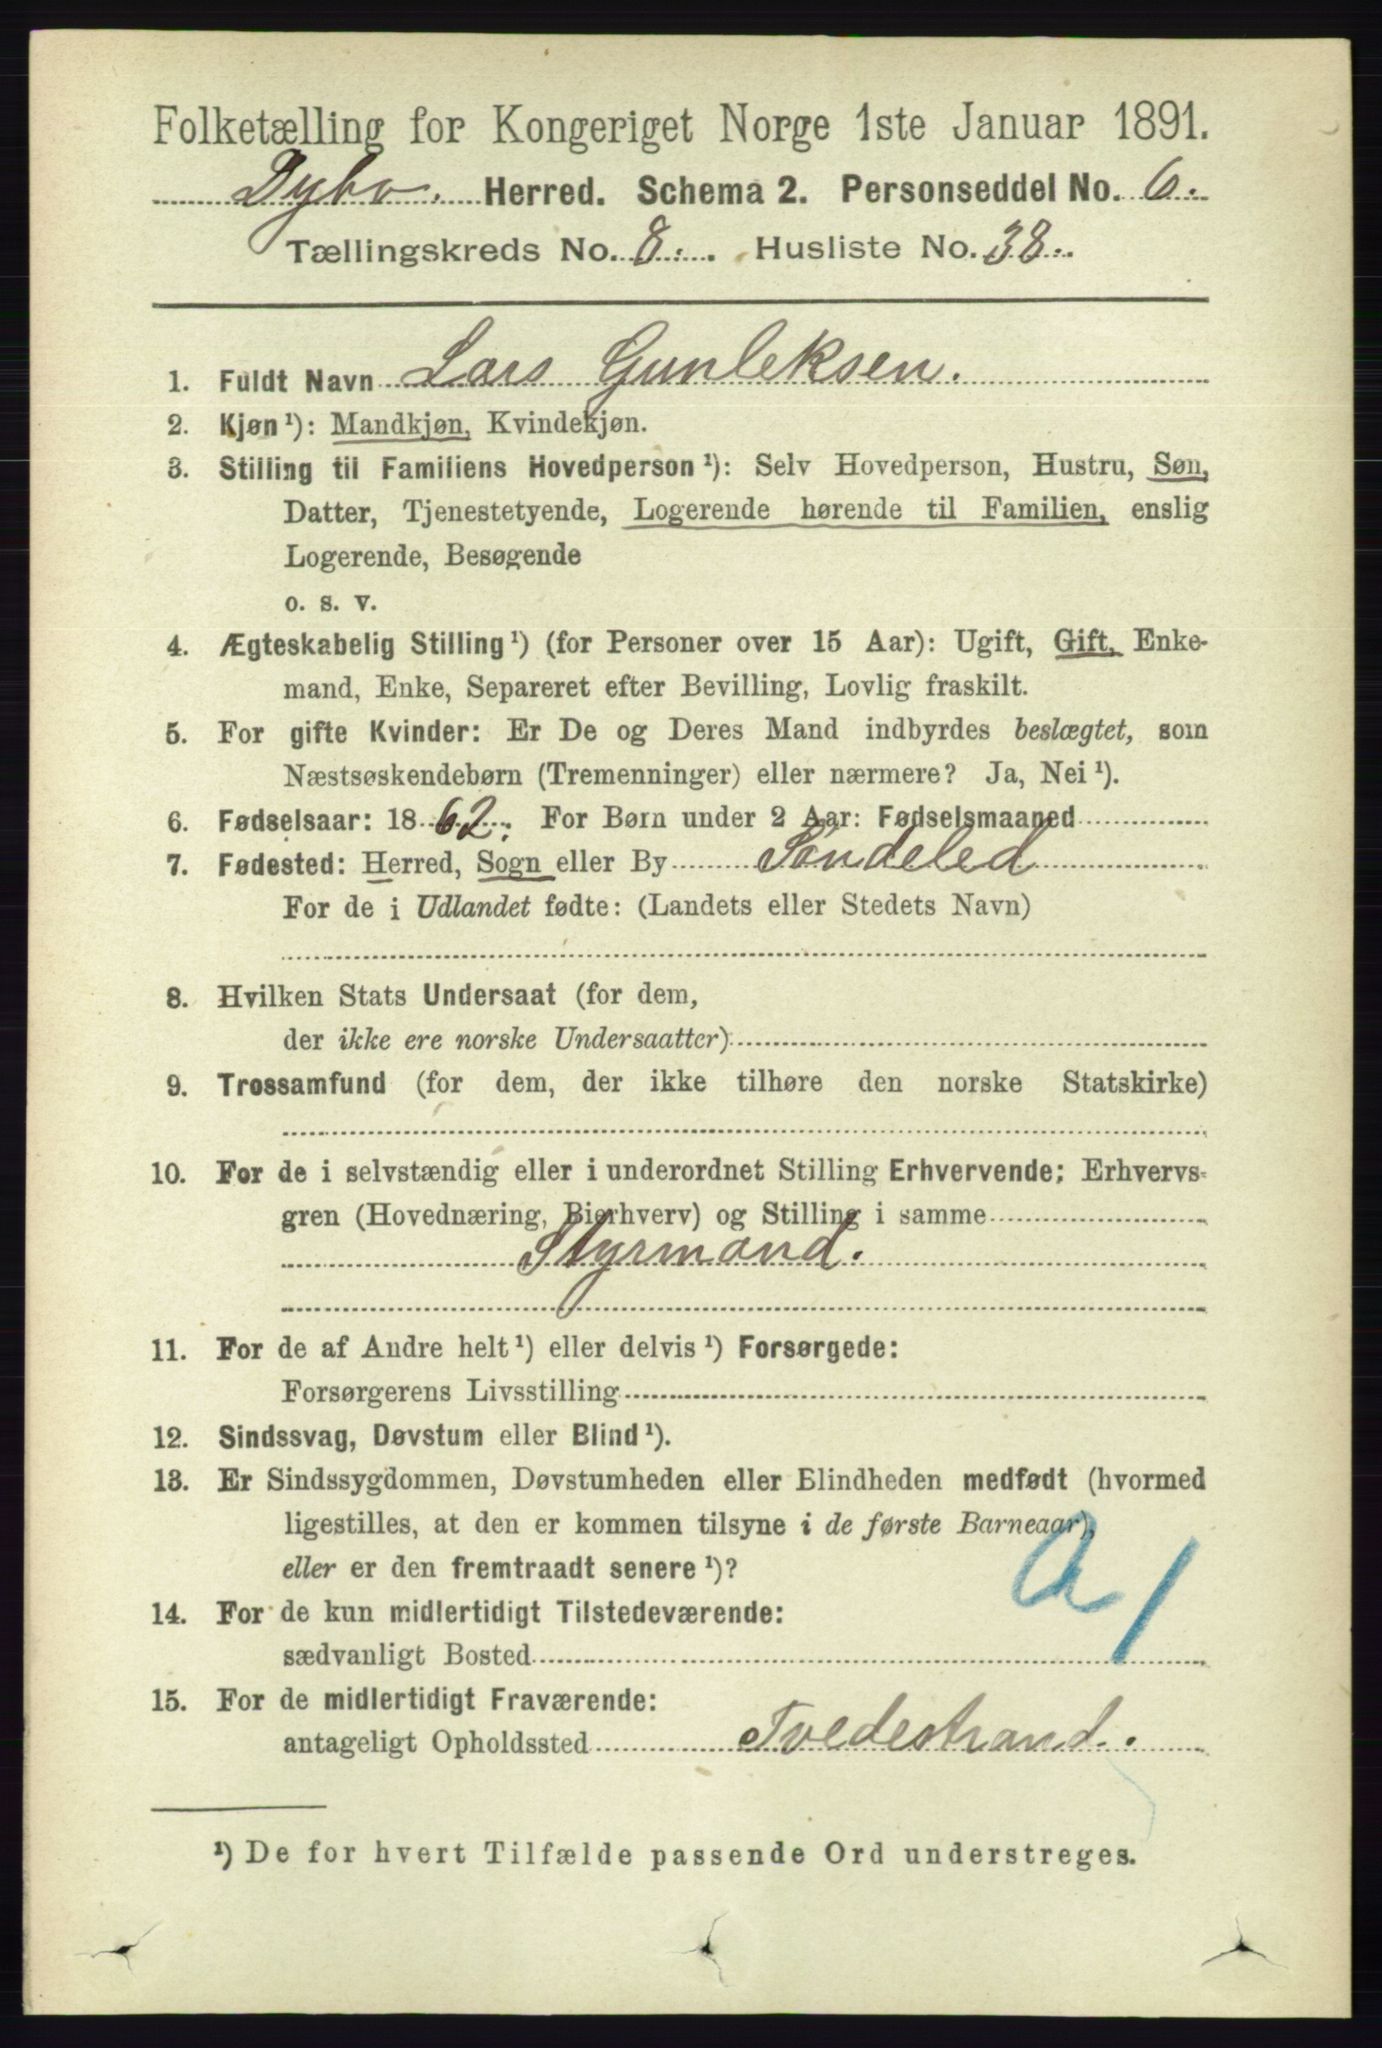 Folketælling for Kongeriget Norge 1ste Januar 1891.
Dybv. Herred. Schema 2. Personseddel No. 6.
Tællingskreds No. 8. Husliste No. 38.
1. Fuldt Navn Lars Gunleksen.
2. Kjøn ¹): Mandkjøn, Kvindekjøn.
3. Stilling til Familiens Hovedperson ¹): Selv Hovedperson, Hustru, Søn,
Datter, Tjenestetyende, Logerende hørende til Familien, enslig
Logerende, Besøgende
o. s. v.
4. Ægteskabelig Stilling ¹) (for Personer over 15 Aar): Ugift, Gift, Enke-
mand, Enke, Separeret efter Bevilling, Lovlig fraskilt.
5. For gifte Kvinder: Er De og Deres Mand indbyrdes beslægtet, som
Næstsøskendebørn (Tremenninger) eller nærmere? Ja, Nei ¹).
6. Fødselsaar: 1862. For Børn under 2 Aar: Fødselsmaaned
7. Fødested: Herred, Sogn eller By Söndeled
For de i Udlandet fødte: (Landets eller Stedets Navn)
8. Hvilken Stats Undersaat (for dem,
der ikke ere norske Undersaatter)
9. Trossamfund (for dem, der ikke tilhøre den norske Statskirke)
10. For de i selvstændig eller i underordnet Stilling Erhvervende; Erhvervs-
gren (Hovednæring, Bierhverv) og Stilling i samme
Styrmand.
11. For de af Andre helt ¹) eller delvis ¹) Forsørgede:
Forsørgerens Livsstilling
12. Sindssvag, Døvstum eller Blind ¹).
13. Er Sindssygdommen, Døvstumheden eller Blindheden medfødt (hvormed
ligestilles, at den er kommen tilsyne i de første Barneaar),
eller er den fremtraadt senere ¹)?
a 1
14. For de kun midlertidigt Tilstedeværende:
sædvanligt Bosted
15. For de midlertidigt Fraværende:
antageligt Opholdssted Tvedestrand.
¹) De for hvert Tilfælde passende Ord understreges.